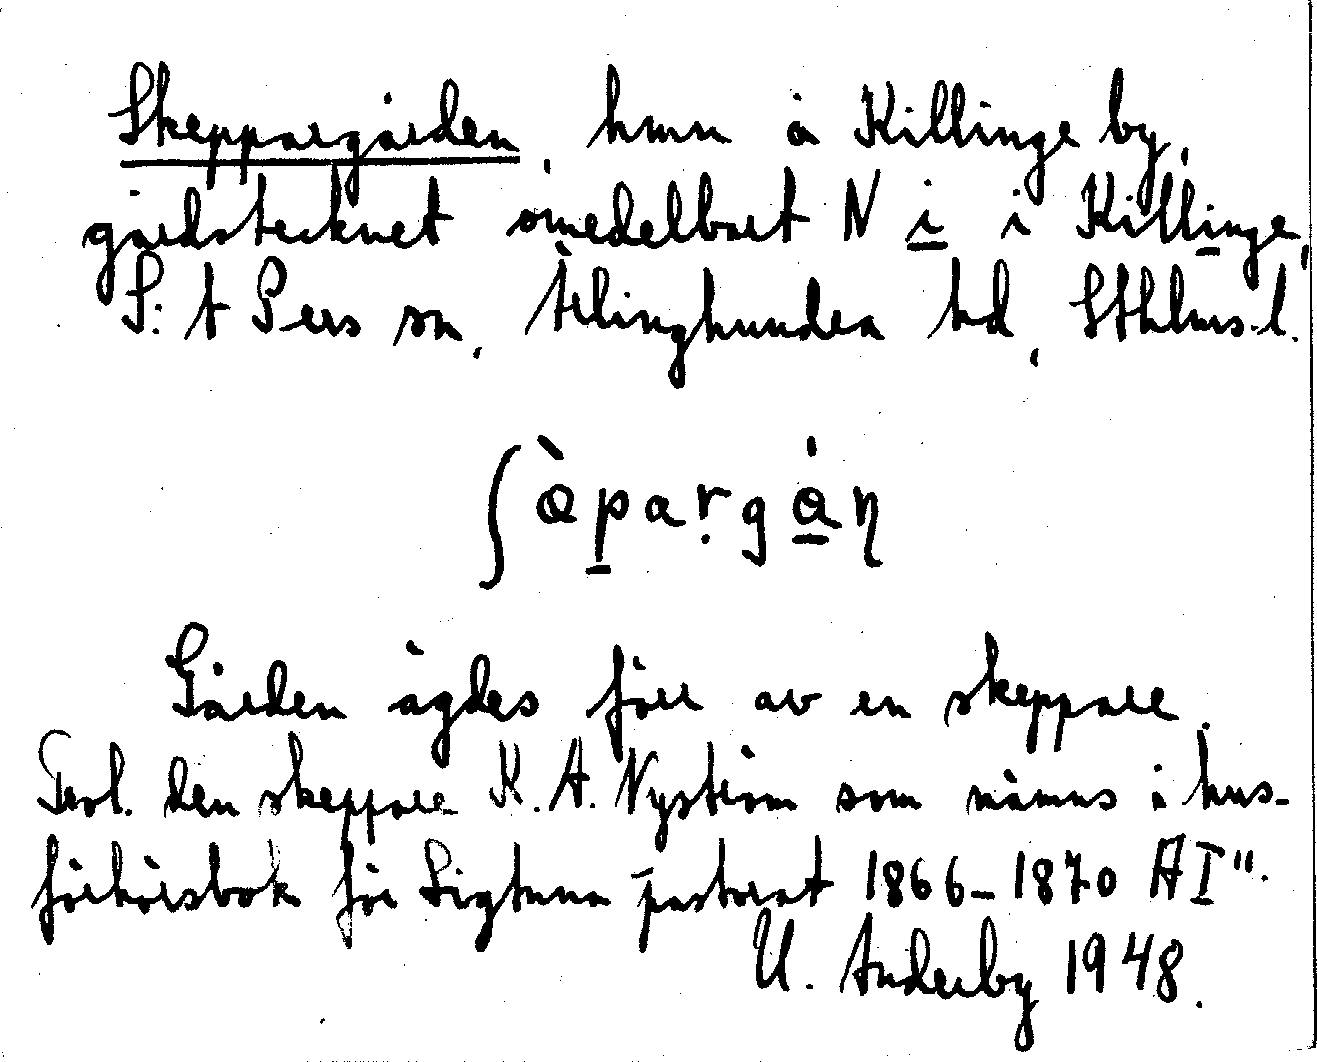 Skeppargården, hmn å Killinge by,
gårdstecknet omedelbart N i i Killinge,
S:t Pers sn, Ärlinghundra hd, Sthlms l.
ʃàpargǻn
Gården ägdes förr av en skeppare.
Trol. den skeppare K. A. Nyström som nämns i hus-
förhörsbok för Sigtuna pastorat 1866-1870 AI".
U. Anderby 1948.